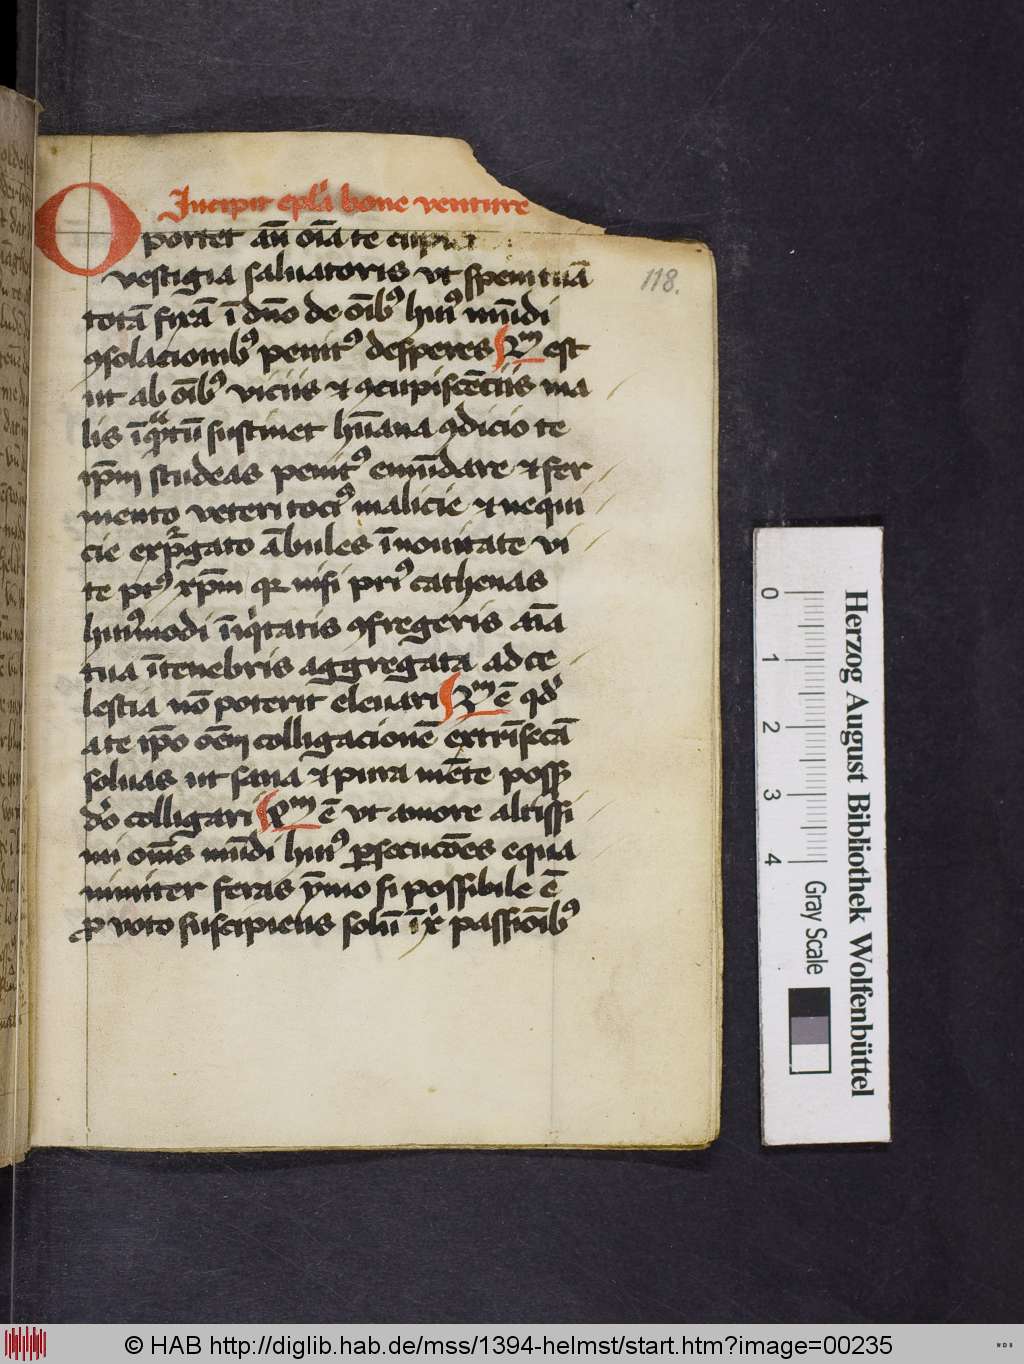 Incipit epl̄a bone venture
Oportet aū oīa te cupi
vestigia saluatoris vt spem tuā
totā fixā ī dn̄o de oībꝰ huiꝰ mūdi
ꝯsolacionibꝰ penitꝰ desperes 2ᵐ est
ut ab oībꝰ viciis ⁊ ꝯcupiscēciis ma
lis īqᵃꝫtū sustinet hūana ꝯdicio te
ip̄m studeas penitꝰ emūdare ⁊ fer
mento veteri tociꝰ malicie ⁊ nequi
cie expꝛgato ābules ī nouitate vi
te ptꝰ xp̄m qꝛ nisi priꝰ cathenas
huiꝰmodi īiqⁱtatis ꝯfregeris aīa
tua ī tenebris aggregata ad ce
lestia nō poterit eleuari 3ᵐ ē qd'
a te ip̄o oēm colligacionē extrīsecā
soluas ut sana ⁊ pura mēte possꝭ
d'o colligari 4ᵐ ē vt amore altissi
mi om̄s mūdi huiꝰ ꝑsecucōes equa
nimiter feras ymo si possibile ē
ꝓ voto suscipiens solū ī xⁱ passiōibꝰ
118.
0 1 2 3 4
Gray Scale
Herzog August Bibliothek Wolfenbüttel
© HAB http://diglib.hab.de/mss/1394-helmst/start.htm?image=00235